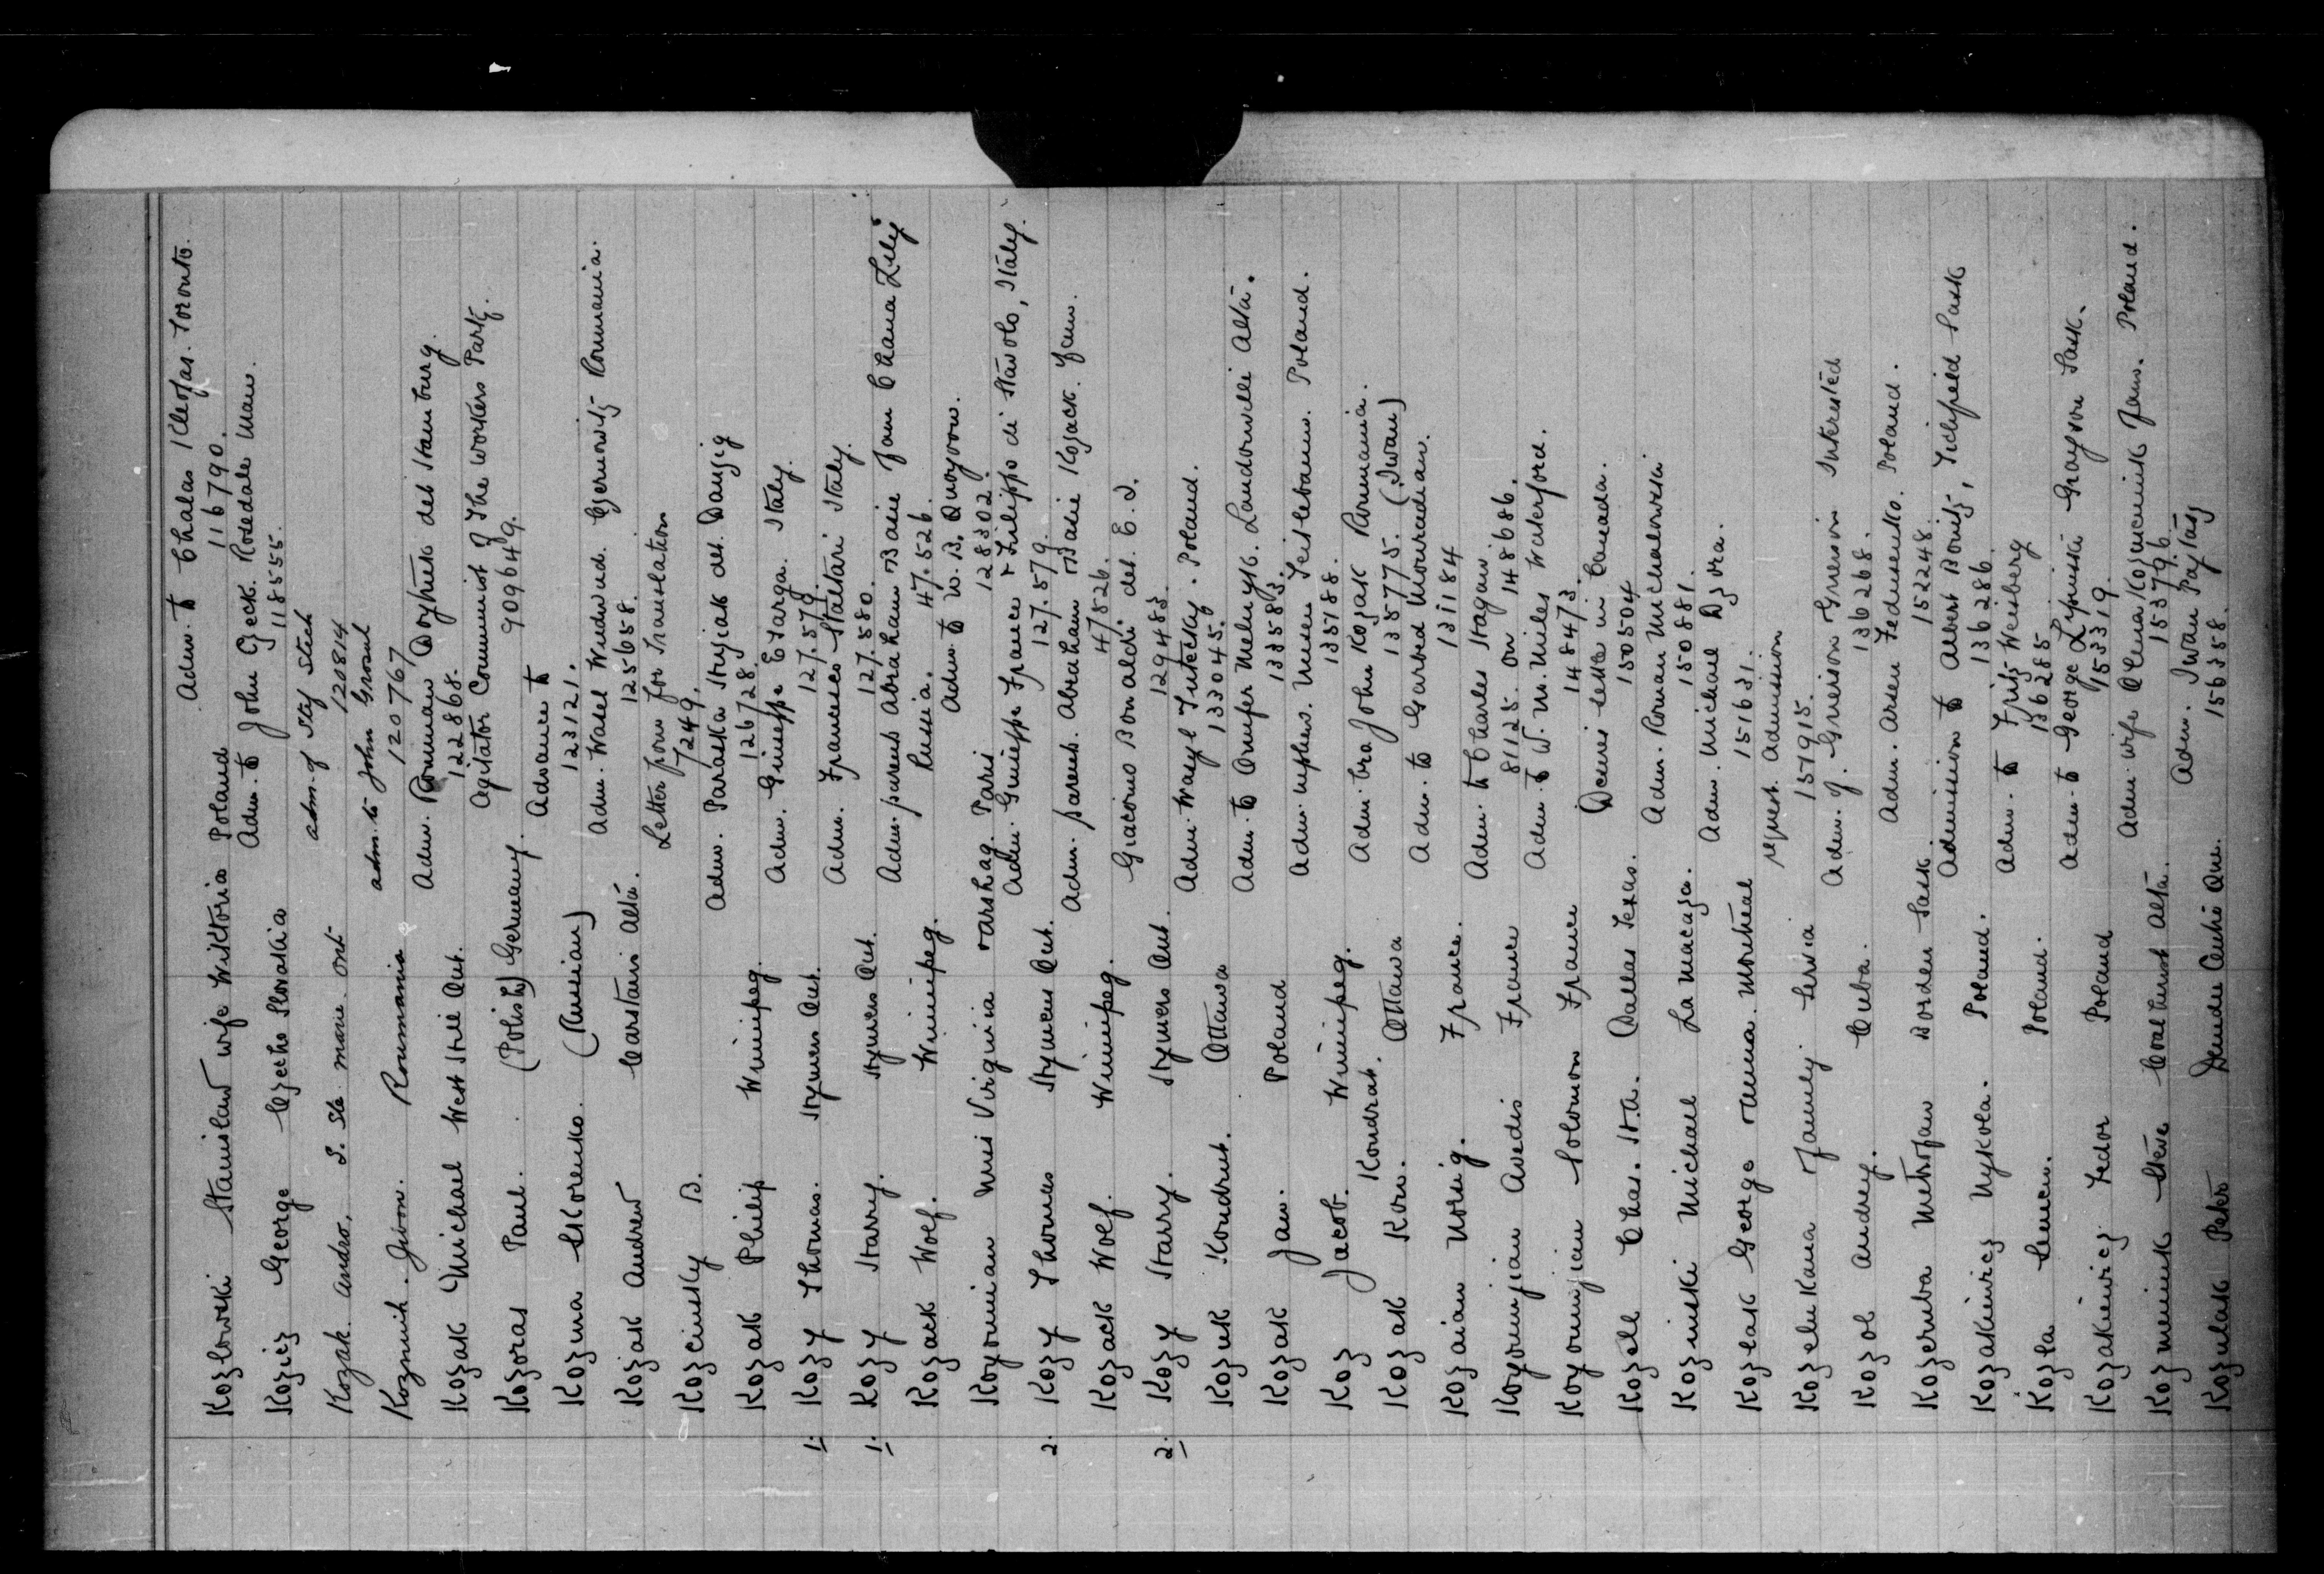 Kozlowski Stanislaw wife Wiktoria Poland Adm. to Chalas Kleofas. Toronto.
116790.
Kozicz George Czecho Slovakia Adm. to John Gzeck. Rosedale Man.
118555.
Kozak. Andro, S. Ste marie. Ont adm. of Stef Stech
120814
Koznuik. Jwon. Roumania adm. to John Grosul
120767
Kozak Michael West Hill Ont. Adm. Romman det Hamburg.
122868.
Kozoras Paul. (Polish) Germany. Agitator Communist of The Workers Party.
909649.
Kozma Skorenko. (Russian) Advance to
123121.
Kozak Andrew Carstairs Alta. Adm. Wasel Czernowitz Roumania.
125658.
Kozcinsky B. Letter for Translation
7249.
Kozak Philip Winnipeg. Adm. Paraska Stryjak det. Danzig
126728.
1. Kozy Thomas. Stymers Ont. Adm. Guiseppe E Targa. Italy.
127.579.
1. Kozy Harry. Stymers Ont. Adm. Francesco Staltari Italy.
127.580.
Kozack Wolf. Winnipeg. Adm. parents Abraham Basie fam Chana Zely
Russia. 47.526.
Koyoumian Miss Virginia Paris Adm. to W. B. Quoyoon.
128302.
2. Kozy Thomas Stymers Ont. Adm. Guiseppe France & Filippo di Stavolo, Italy.
127.579.
Kozack Wolf. Winnipeg. Adm. parents. Abraham Basie Kozack. fam.
47526.
2. Kozy Harry. Stymers Ont. Giacomo Bonaldi. det. E. I.
129483.
Kozuk Kondrat. Ottawa Adm. Wasyl Tutecky. Poland.
133045.
Kozak Jan. Poland Adm. to Onufer Melnyk. Landonville Alta.
133583.
Koz Jacob. Winnipeg. Adm. nephew. Poland.
135188.
Kozak Kon. Kondrat. Ottawa Adm. bro John Kozak Roumania.
135775. (Iwan)
Kozaian Noisig. France. Adm. to Garbed Mouradian.
131184
Koyoumjian Avedis France Adm. to Charles Stagain.
81125. on 148686.
Koyoumjian Solomon France Adm. to W. M. Miles Waterford.
148473.
Kozell Chas. H.A. Dallas Texas. Denies settle in Canada.
150504
Kozinski Michael La Macaza. Adm. Roman Michalowski
150881.
Kozlak George Montreal Adm. Michael Dzvra.
151631.
Kozelukana Family Servia request. Admission
151915.
Kozol Andrey. Cuba. Adm. of. Grierson Grierson Interested
136268.
Kozeruba Metrofan Borden Sask. Adm. Arsen Fedusenko. Poland.
152248.
Kozakiewicz Mykola. Poland. Admission to Albert Bonitz, Tichfield Sask
136286.
Kozla Semen. Poland. Adm. to Fritz Weisberg
136285
Kozakiewicz Fedor Poland Adm. to George Lysinski Grayson Sask.
153319.
Kozmeniuk Steve Coalhurst Alta. Adm. wife Olena Kozmeniuk fam. Poland.
153796.
Kozulak Peter Que. Adm. Iwan Paytasz
156358.